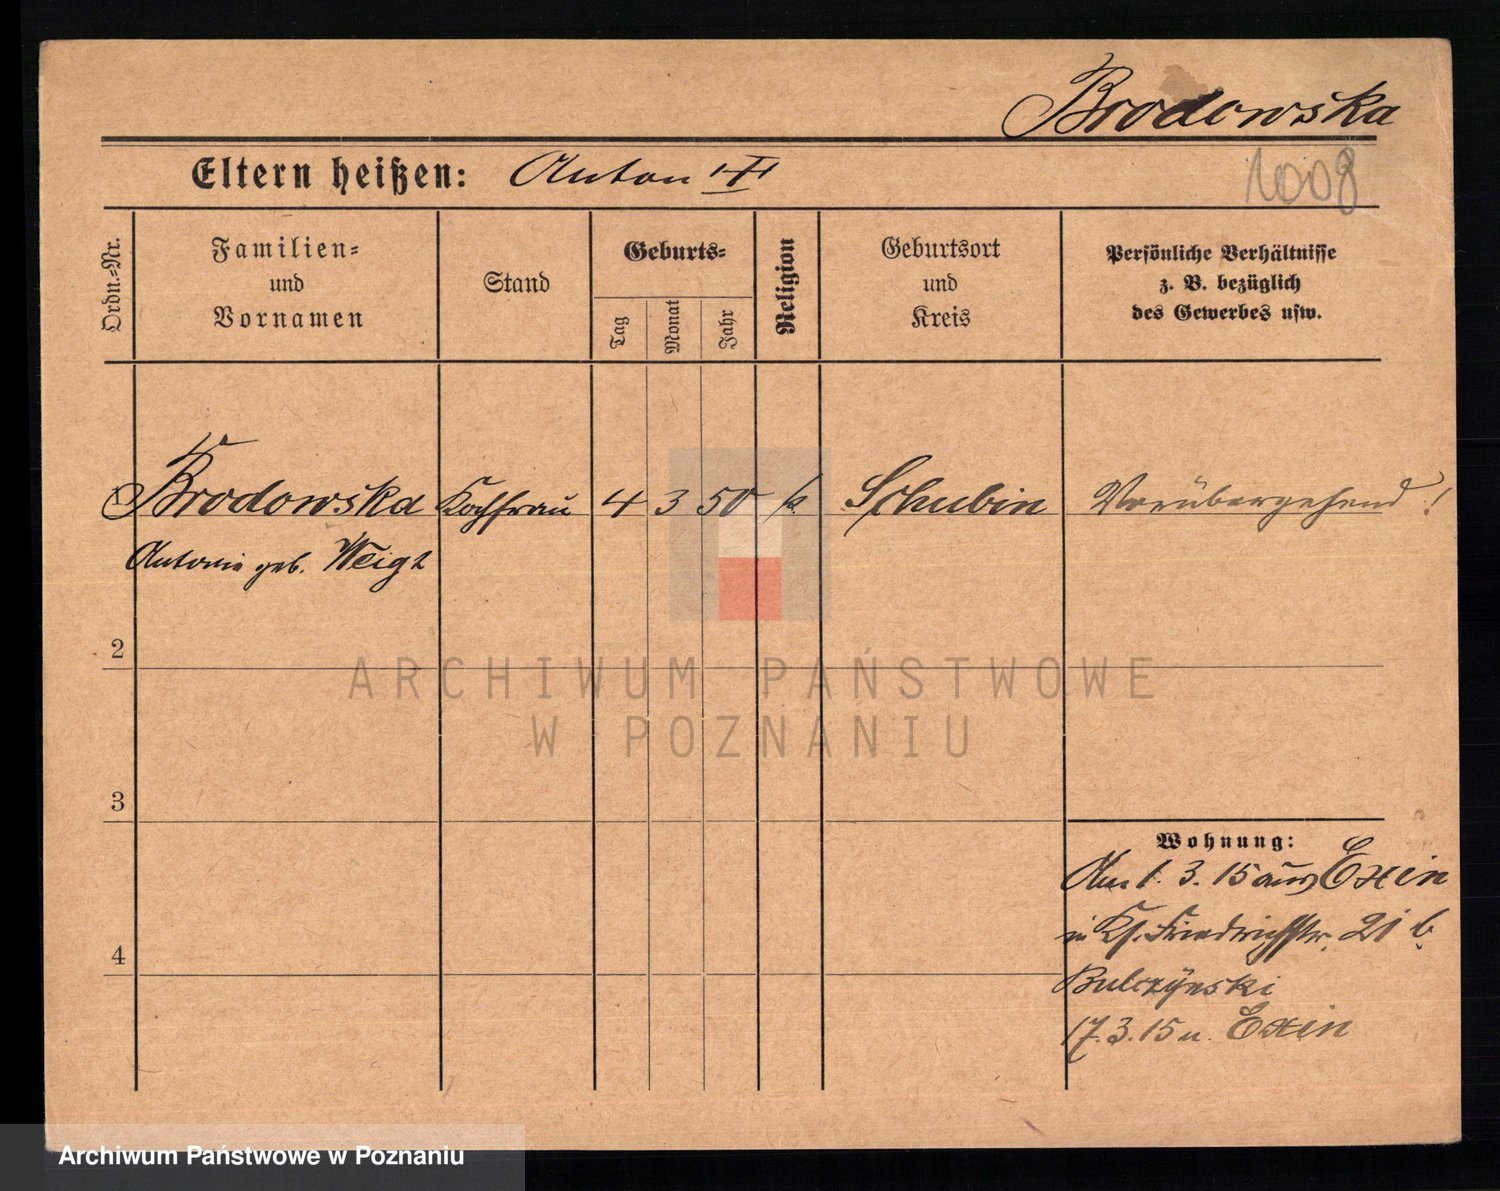 Brodowska
Eltern heißen: Anton
1008
Ordn.=Nr.
Familien=
und
Vornamen
Stand
Geburts=
Tag
Monat
Jahr
Religion
Geburtsort
und
Kreis
Persönliche Verhältnisse
z. B. bezüglich
des Gewerbes usw.
1 Brodowska Kochfrau 4 3 50 k Schubin Vorübergehend!
Antonie geb. Weigt
2
ARCHIWUM PAŃSTWOWE
W POZNANIU
3
Wohnung:
Am 1. 3. 15 aus Exin
in Friedrichstr. 21 b.
4
Bulczynski
17. 3. 15 n. Exin
Archiwum Państwowe w Poznaniu